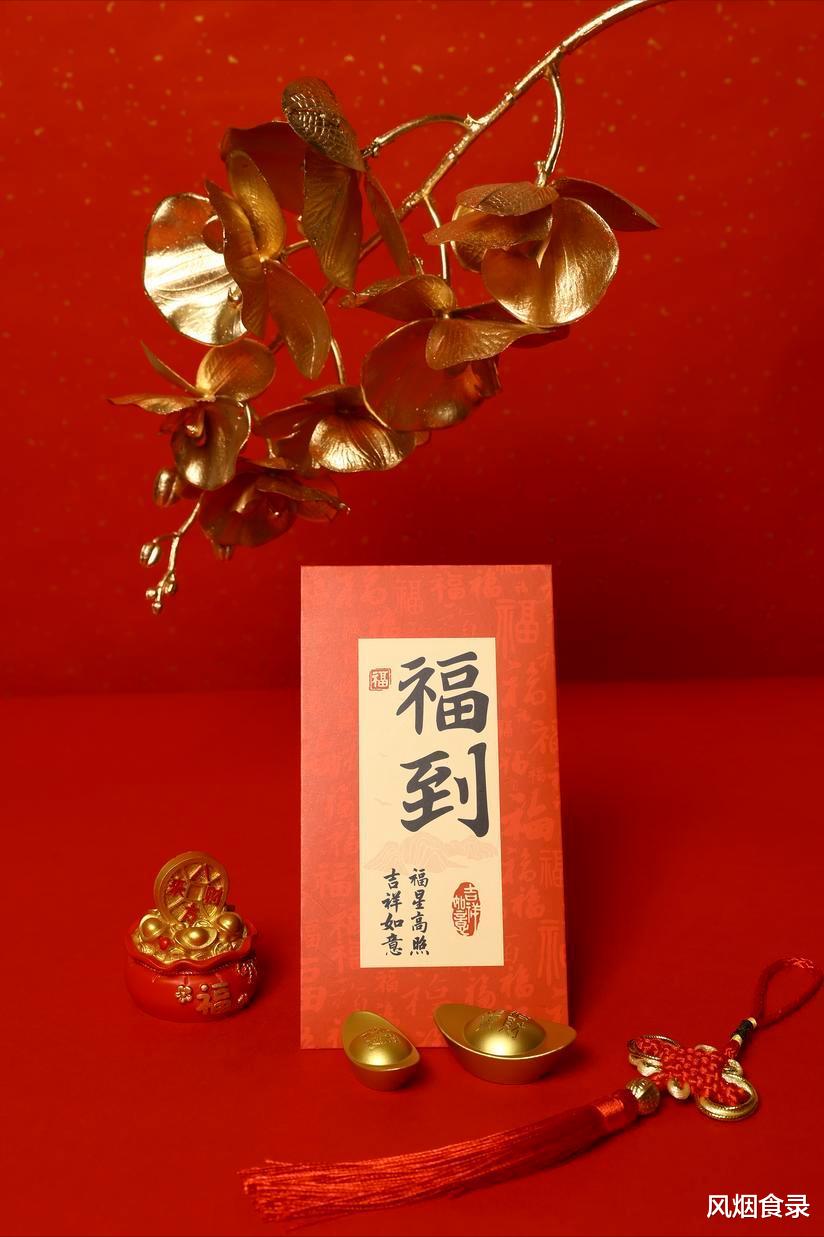 福
福到
福星高照
吉祥如意
吉祥如意
福
风烟食录